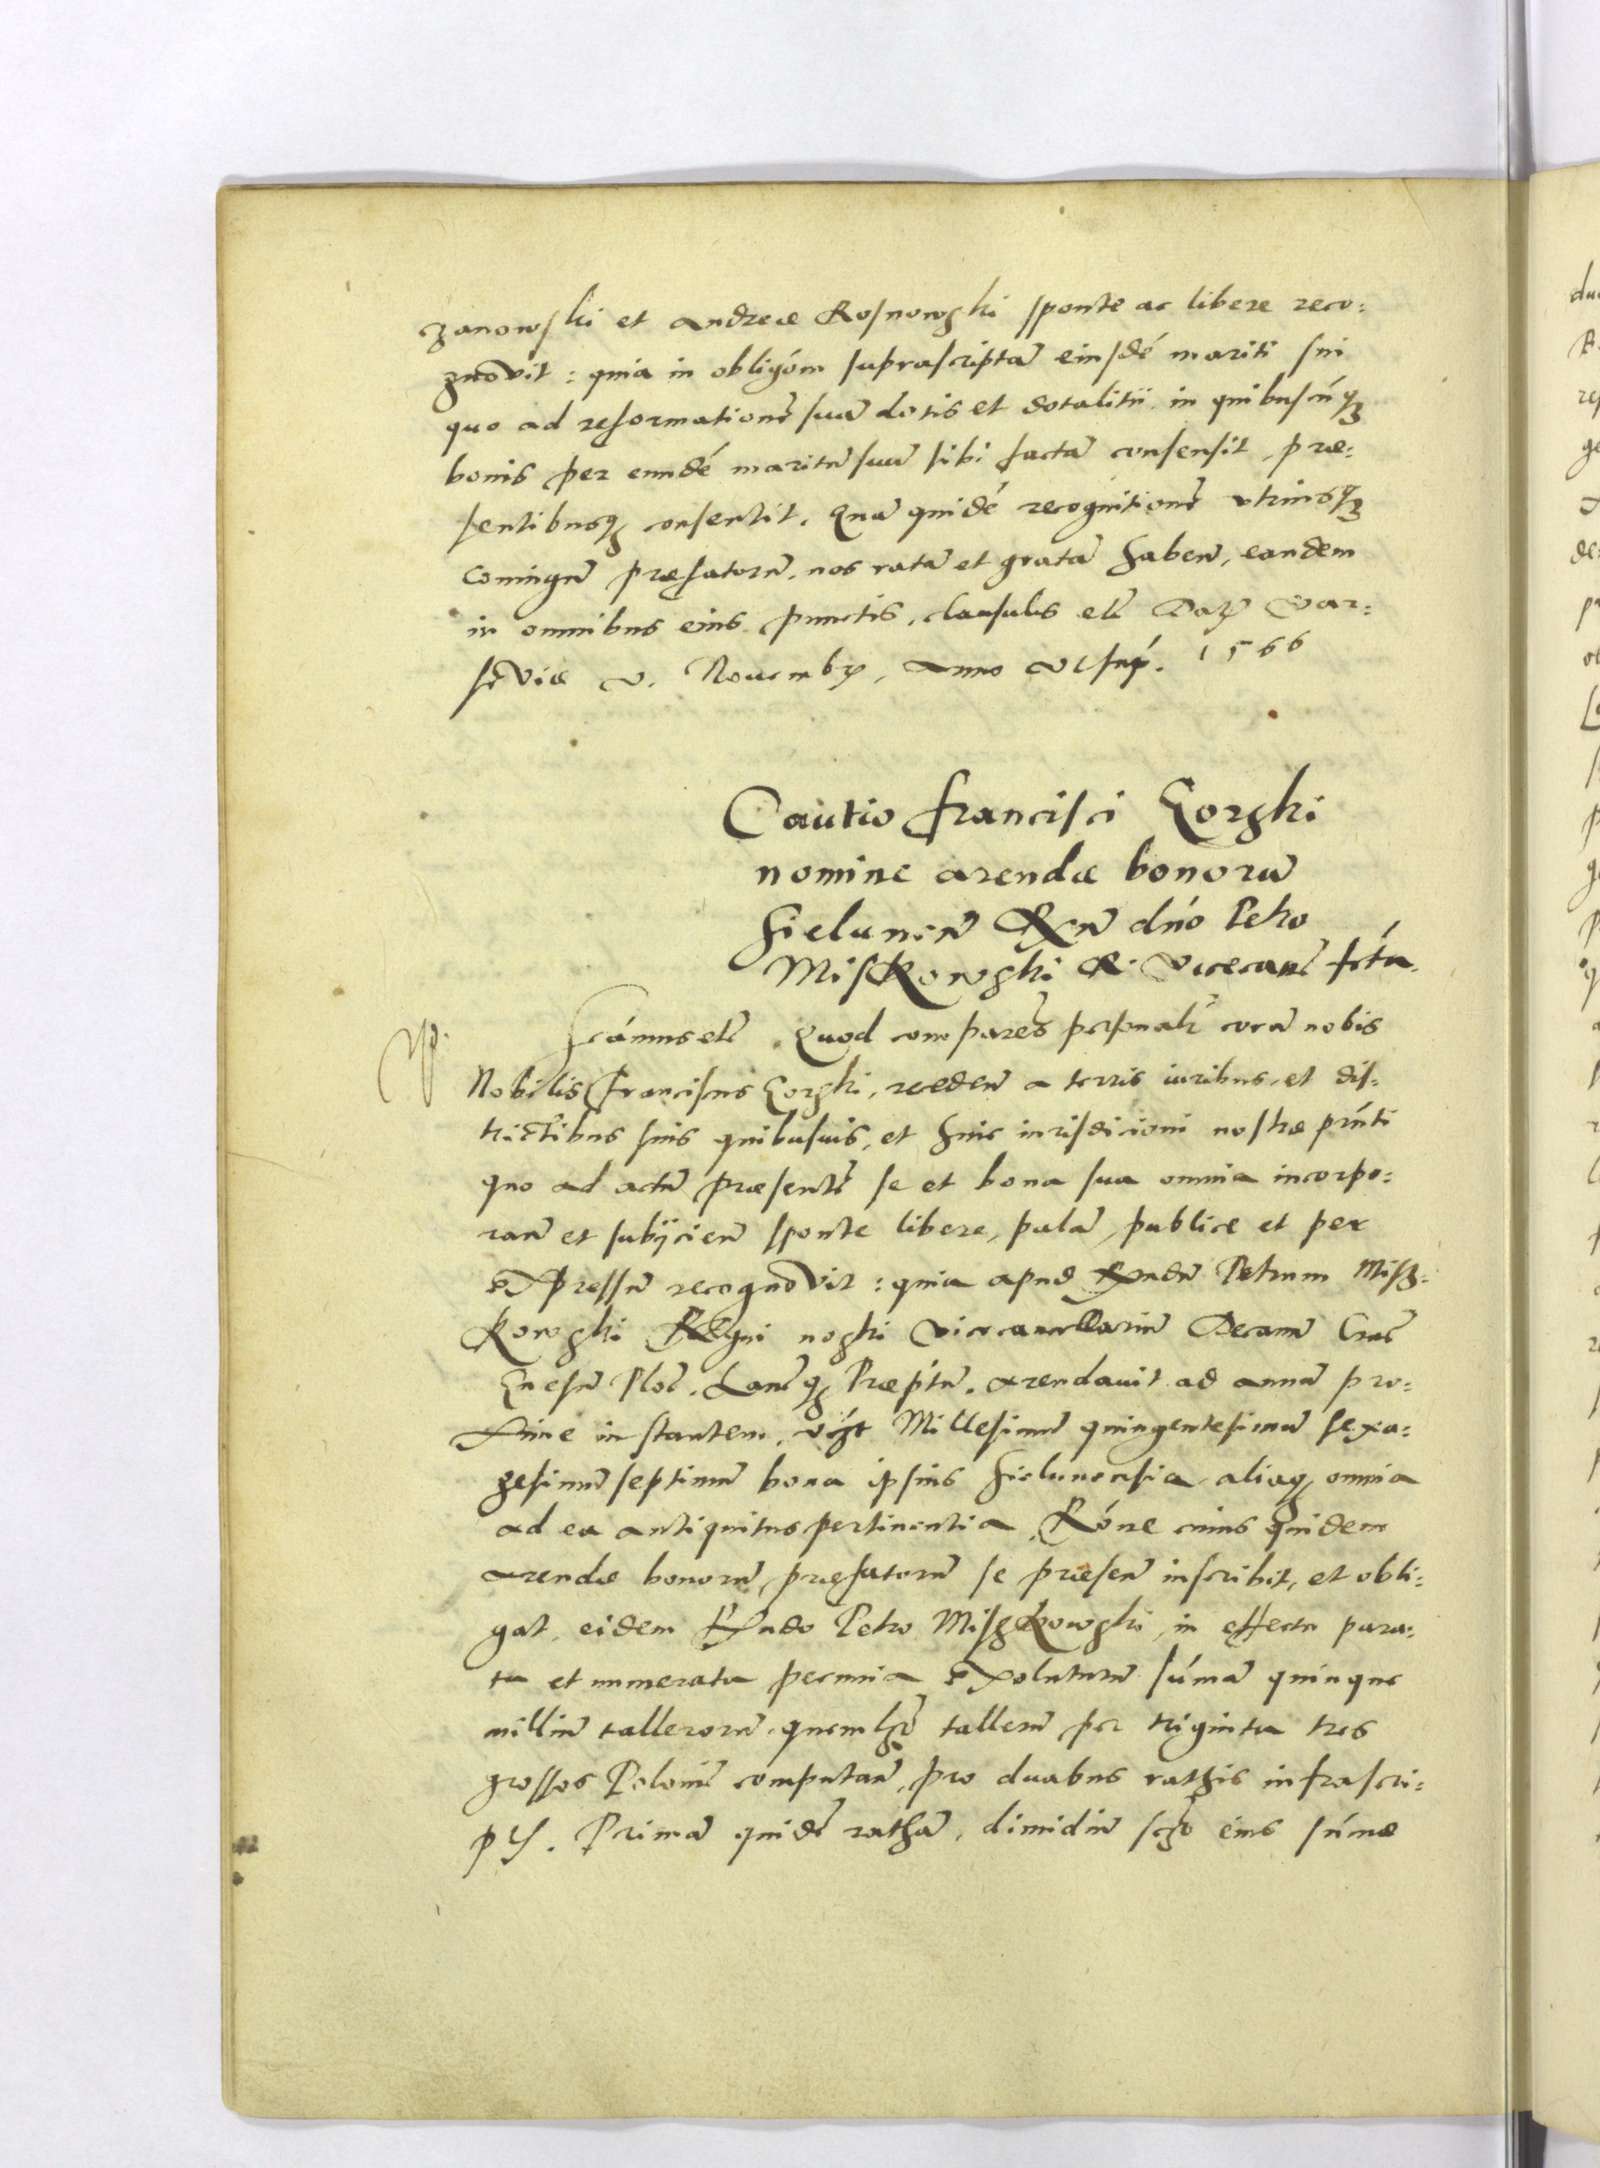 czanowski et Andreae Rosnowski sponte ac libere reco:
gnovit: quia in obligóm suprascriptā eiusdē mariti sui
quo ad reformationē suā dotis et dotalitii in quibuscūq3
bonis per eundē maritū suū sibi factā consensit, præ:
sentibusq3 consentit. Quā quidē recognitionē utriusq3
coniugū præfatorū, nos ratā et gratā habeñ, eandem
in omnibus eius punctis, clausulis etc̄ Datȝ Var:
saviæ V. Novembȝ, anno ut sup̃. 1566
Cautio Francisci Gorski
nomine arendæ bonorū
Hieluneñ Rxn dńo Petro
Miskowski R. Vicecanc̄ fcta
Sc̄ámus etc̄. Quod compareñs personalr̄ corā nobis
Nobilis Franciscus Gorski, recedeñ a terris iuribus et dis:
trictibus suis quibusvis, et huic iurisdicioni nostræ prńti
quo ad actū præsentē se et bona sua omnia incorpo:
rañ et subÿcieñ sponte libere, palā, publice et per
expressū recognovit: quia apud Rxndū Petrum Misz:
kowski Regni nostri Vicecancellariū Decanū Crac̄
Gnesñ Ploc̄. Lanc̄q3 Præptū. arendavit ad annū pro:
xime instantem, vczt Millesimū quingentesimū sexa:
gesimū septimū bona ipsius Hielunensia aliaq3 omnia
ad ea antiquitus pertinentia. Róne cuius quidem
arendæ bonorū, præfatorū se præseñ inscribit, et obli:
gat, eidem Rxndo Petro Miszkowski, in effectu para:
ta et numerata pecunia exoluturū súmā quinque
milliū tallerorū, quemlȝt̄ tallerū per triginta tres
grossos Polonic̄ computañ, pro duabus rathis infrascri:
ptȝ. Primā quidē rathā, dimidiū sczt̄ eius súmæ